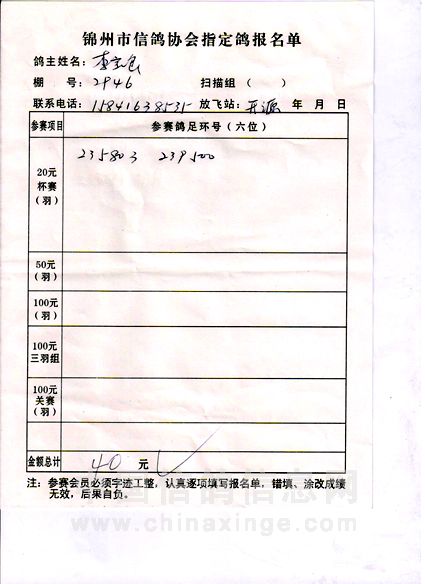 锦州市信鸽协会指定鸽报名单
鸽主姓名：李
棚　号：2946　扫描组（　）
联系电话：15841638535　放飞站：开源　年　月　日
参赛项目　参赛鸽足环号（六位）
20元
杯赛
（羽）
235803　239500
50元
（羽）
100元
（羽）
100元
三羽组
100元
关赛
（羽）
金额总计　40　元
注：参赛会员必须字迹工整，认真逐项填写报名单，错填、涂改成绩
无效，后果自负。
中国信鸽信息网
www.chinaxinge.com